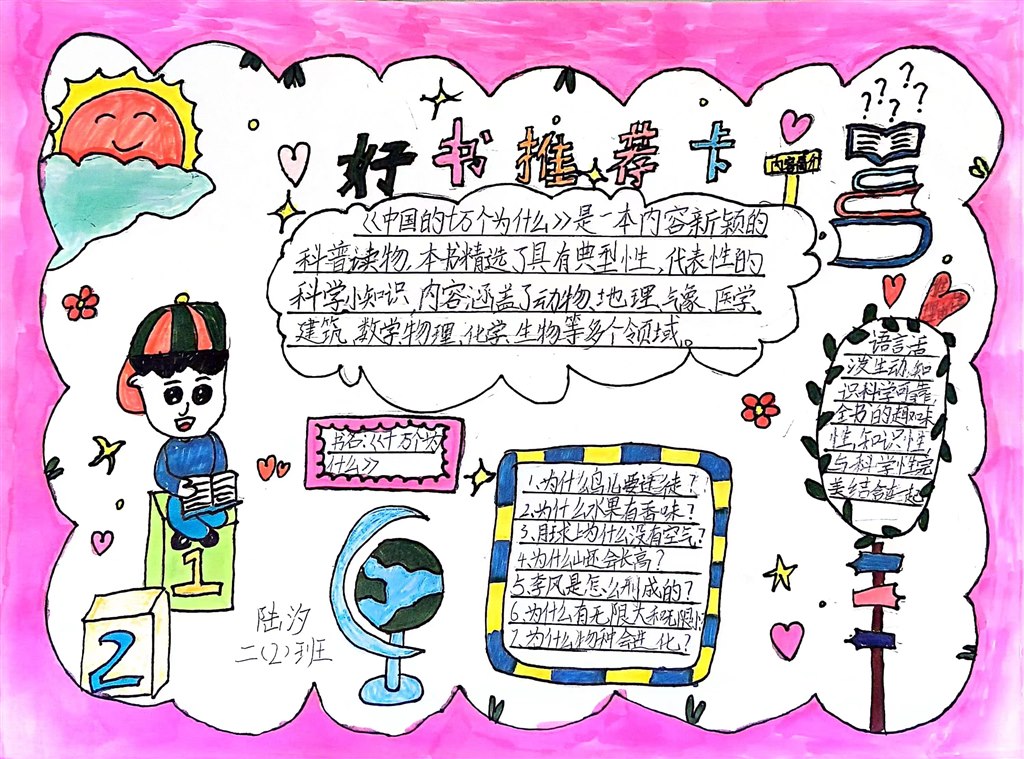 好书推荐卡
内容简介
《中国的十万个为什么》是一本内容新颖的
科普读物,本书精选了具有典型性、代表性的
科学小知识,内容涵盖了动物、地理、气象、医学、
建筑、数学、物理、化学、生物等多个领域。
书名:《十万个为
什么》
1、为什么鸟儿要迁徒?
2、为什么水果有香味?
3、月球上为什么没有空气?
4、为什么山还会长高?
5、季风是怎么形成的?
6、为什么有无限大和无限小
7、为什么物种会进化?
语言活
泼生动,知
识科学可靠,
全书的趣味
性,知识性,
与科学性完
美结合在一起
陆汐
二(2)班
1
2
????